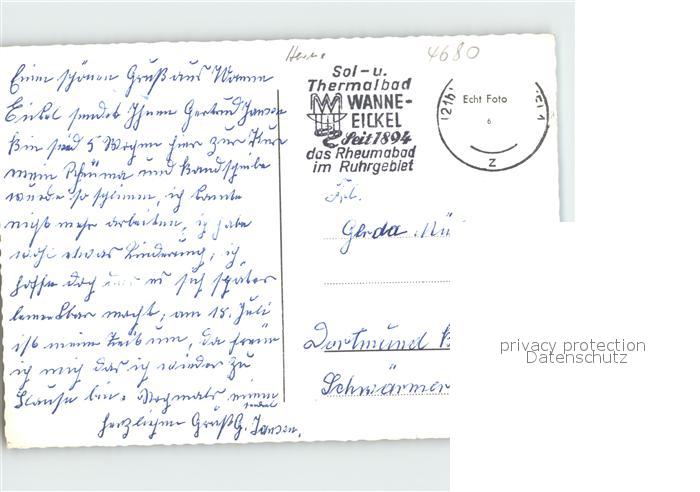 Herne 4680
Sol-u.
Thermalbad
WANNE-
EICKEL
Seit 1894
das Rheumabad
im Ruhrgebiet
Echt Foto
6
z
Einen schönen Gruß aus Wanne
Eickel sendet Ihnen Gertrud Jansen
Bin seid 5 Wochen hier zur Kur
mein Rheuma und Bandscheibe
wurde so schlimm, ich konnte
nicht mehr arbeiten, ich habe
wohl etwas Linderung, ich
hoffe doch das es sich später
bemerkbar macht, am 18. Juli
ist meine Zeit um, da freue
ich mich das ich wieder zu
Hause bin. Nochmals einen
herzlichen Gruß G. Jansen.
sendet
Frl.
Gerda Mü
Dortmund
Schwärmer
privacy protection
Datenschutz